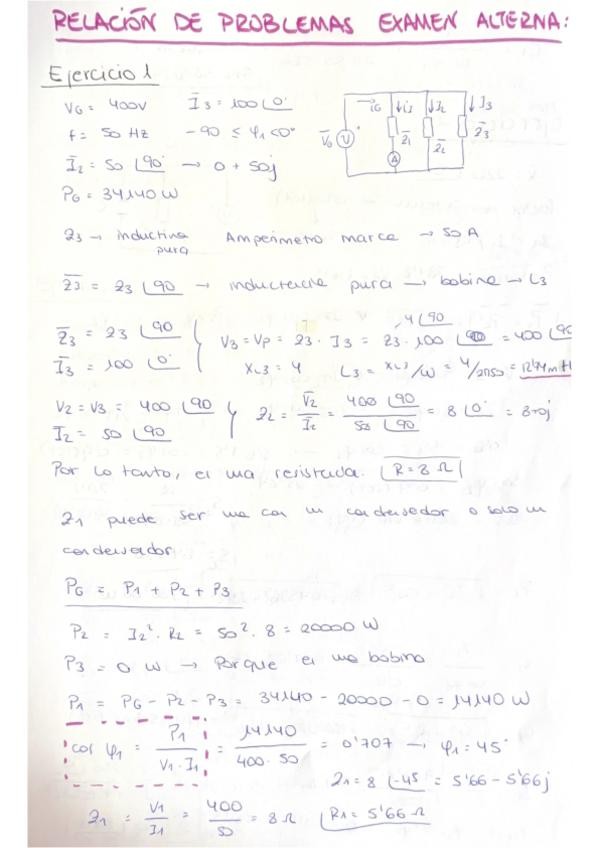 RELACIÓN DE PROBLEMAS EXAMEN ALTERNA:
Ejercicio 1
VG = 400V    I̅3 = 100∠0°
f = 50 Hz    -90 ≤ φ1 < 0°
I̅2 = 50∠90° → 0 + 50j
PG = 34140 W
V̅G V iG ↓i1 ↓I2 ↓I3 Z̅1 Z̅2 Z̅3 A
Z3 → inductiva pura    Amperímetro marca → 50 A
Z̅3 = Z3∠90 → inductancia pura → bobina → L3
Z̅3 = Z3∠90
I̅3 = 100∠0°
V3 = VP = Z3 · I3 = Z3 · 100∠90 = 400∠90
4∠90
XL3 = 4    L3 = XL3/W = 4/2π50 = 12'74 mH
V2 = V3 = 400∠90
I̅2 = 50∠90
Z2 = V̅2/I2 = 400∠90/50∠90 = 8∠0° = 8+0j
Por lo tanto, es una resistencia. R = 8 Ω
Z1 puede ser una con un condensador o solo un
condensador
PG = P1 + P2 + P3
P2 = I2² · R2 = 50² · 8 = 20000 W
P3 = 0 W → Porque es una bobina
P1 = PG - P2 - P3 = 34140 - 20000 - 0 = 14140 W
cos φ1 = P1/V1·I1 = 14140/400·50 = 0'707 → φ1 = 45°
Z1 = 8∠-45 = 5'66 - 5'66j
Z1 = V1/I1 = 400/50 = 8 Ω    R1 = 5'66 Ω